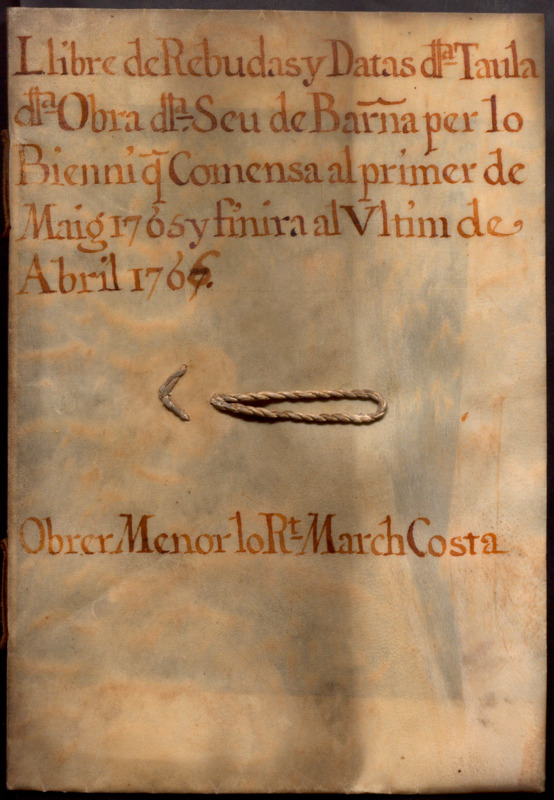 Llibre de Rebudas y Datas dlla Taula
dlla Obra dlla Seu de Barña per lo
Bienni q̃ Comensa al primer de
Maig 1765 y finira al Vltim de
Abril 1766.
Obrer Menor lo Rt. March Costa